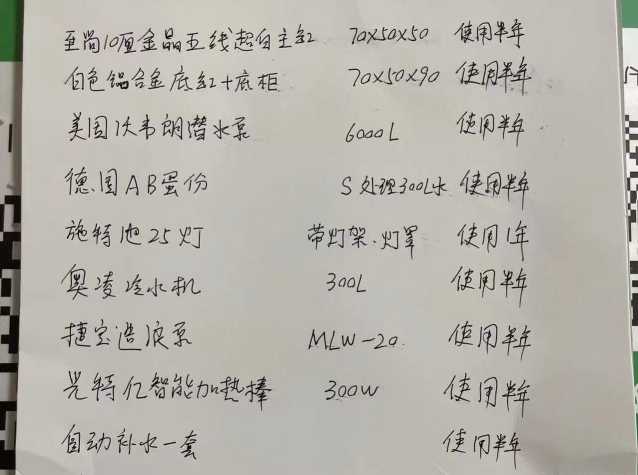 至尚10厘金晶五线超白主缸 70x50x50 使用半年
白色铝合金底缸+底柜 70x50x90 使用半年
美国沃韦朗潜水泵 6000L 使用半年
德国AB蛋份 S处理300L水 使用半年
施特池25灯 带灯架.灯罩 使用1年
奥凌冷水机 300L 使用半年
捷宝造浪泵 MLW-20. 使用半年
光特亿智能加热棒 300W 使用半年
自动补水一套 使用半年